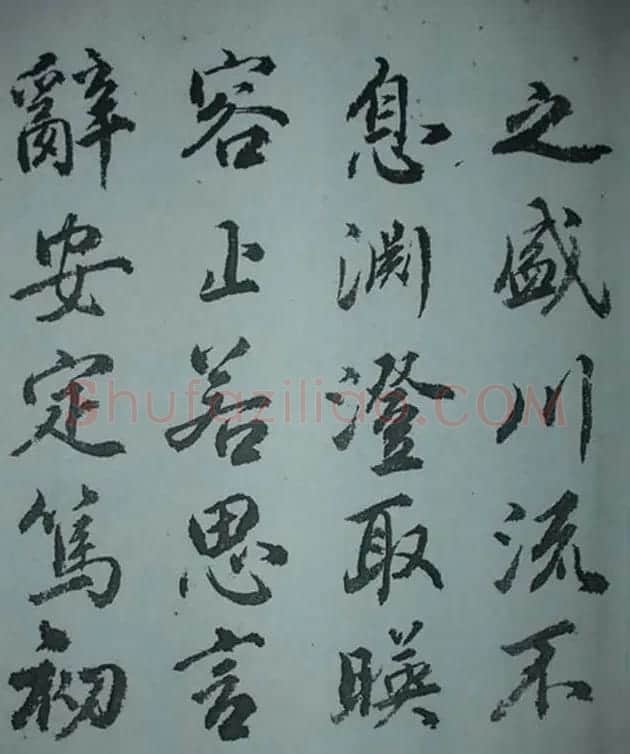 之盛川流不
息渊澄取暎
容止若思言
辭安定篤初
Shufaziliao.COM